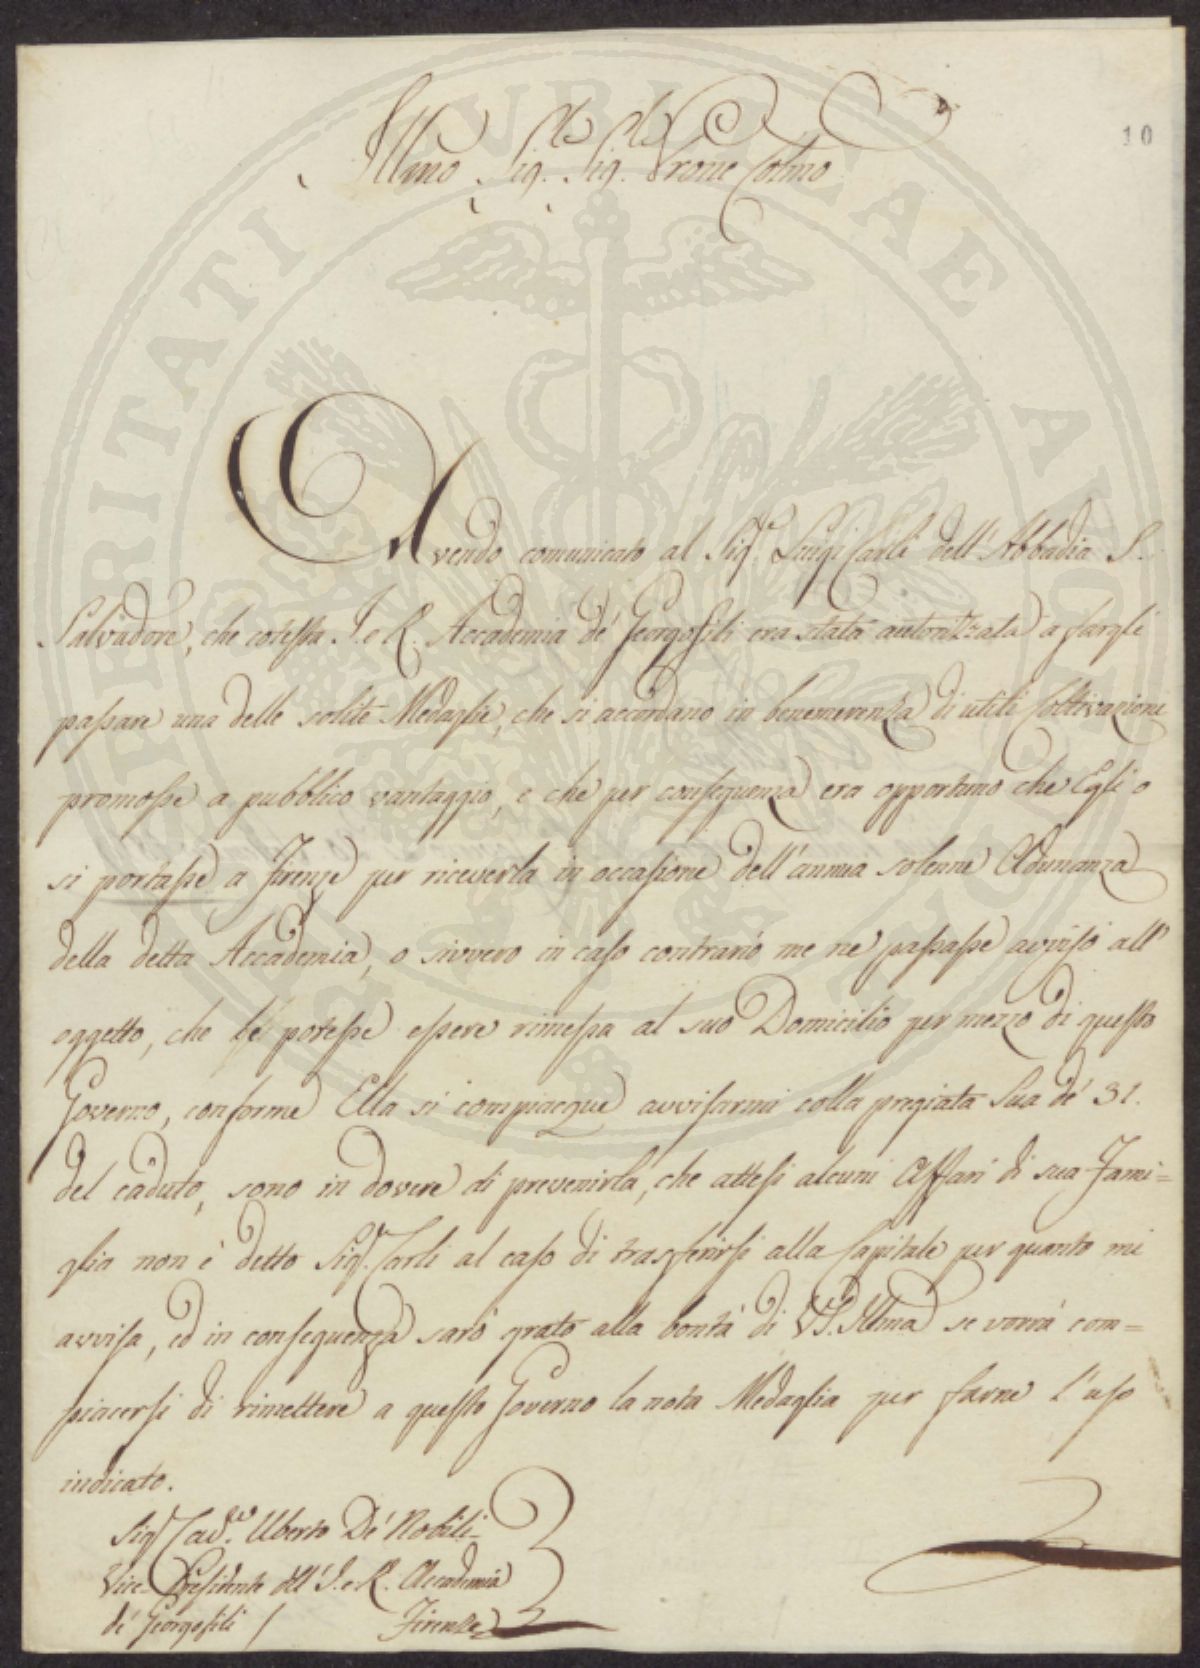 10
Illmo Sig. Sig. Prone Colmo
Avendo comunicato al Sigr. Luigi Carli dell'Abbadia S.
Salvadore, che cotesta I. e R. Accademia de' Georgofili era stata autorizzata a fargli
passare una delle solite Medaglie, che si accordano in benemerenza di utili Coltivazioni
promosse a pubblico vantaggio, e che per conseguenza era opportuno che Egli o
si portasse a Firenze per riceverla in occasione dell'annua solenne Adunanza
della detta Accademia, o sivvero in caso contrario me ne passasse avviso all'
oggetto, che le potesse essere rimessa al suo Domicilio per mezzo di questo
Governo, conforme Ella si compiacque avvisarmi colla pregiata Sua de' 31.
del caduto, sono in dovere di prevenirla, che attesi alcuni Affari di sua Fami=
glia non è detto Sigr. Carli al caso di trasferirsi alla Capitale per quanto mi
avvisa, ed in conseguenza sarò grato alla bontà di VS. Illma se vorrà com=
piacersi di rimettere a questo Governo la nota Medaglia per farne l'uso
indicato.
Sigr. Cav.re Uberto De' Nobili
Vice-Presidente dell'I. e R. Accademia
de' Georgofili / Firenze